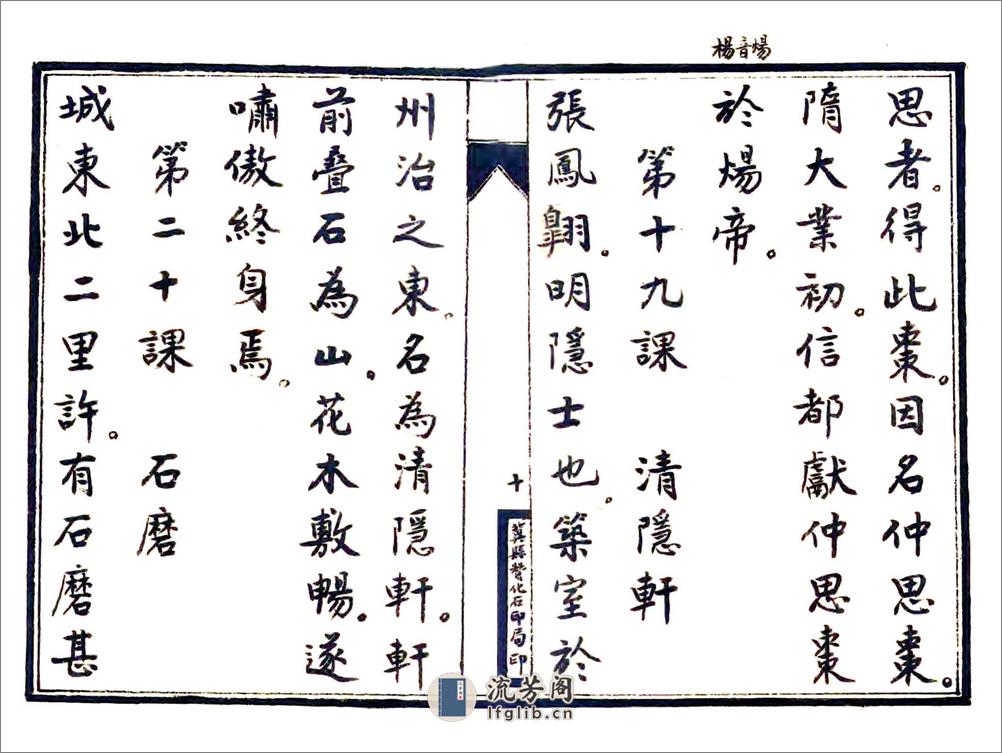 楊音煬
思者。得此棗。因名仲思棗。
隋大業初。信都獻仲思棗
於煬帝。
第十九課 清隱軒
張鳳翱。明隱士也。築室於
十
冀縣贊化石印局印
州治之東。名為清隱軒。軒
前疊石為山。花木敷暢。遂
嘯傲終身焉。
第二十課 石磨
城東北二里許。有石磨甚
流芳阁
lfglib.cn